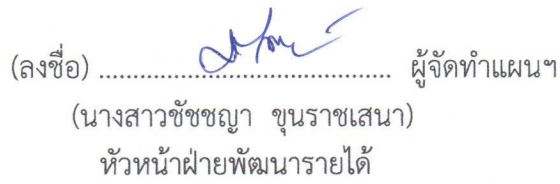 (ลงชื่อ) ................................................ ผู้จัดทำแผนฯ
(นางสาวชัชชญา ขุนราชเสนา)
หัวหน้าฝ่ายพัฒนารายได้